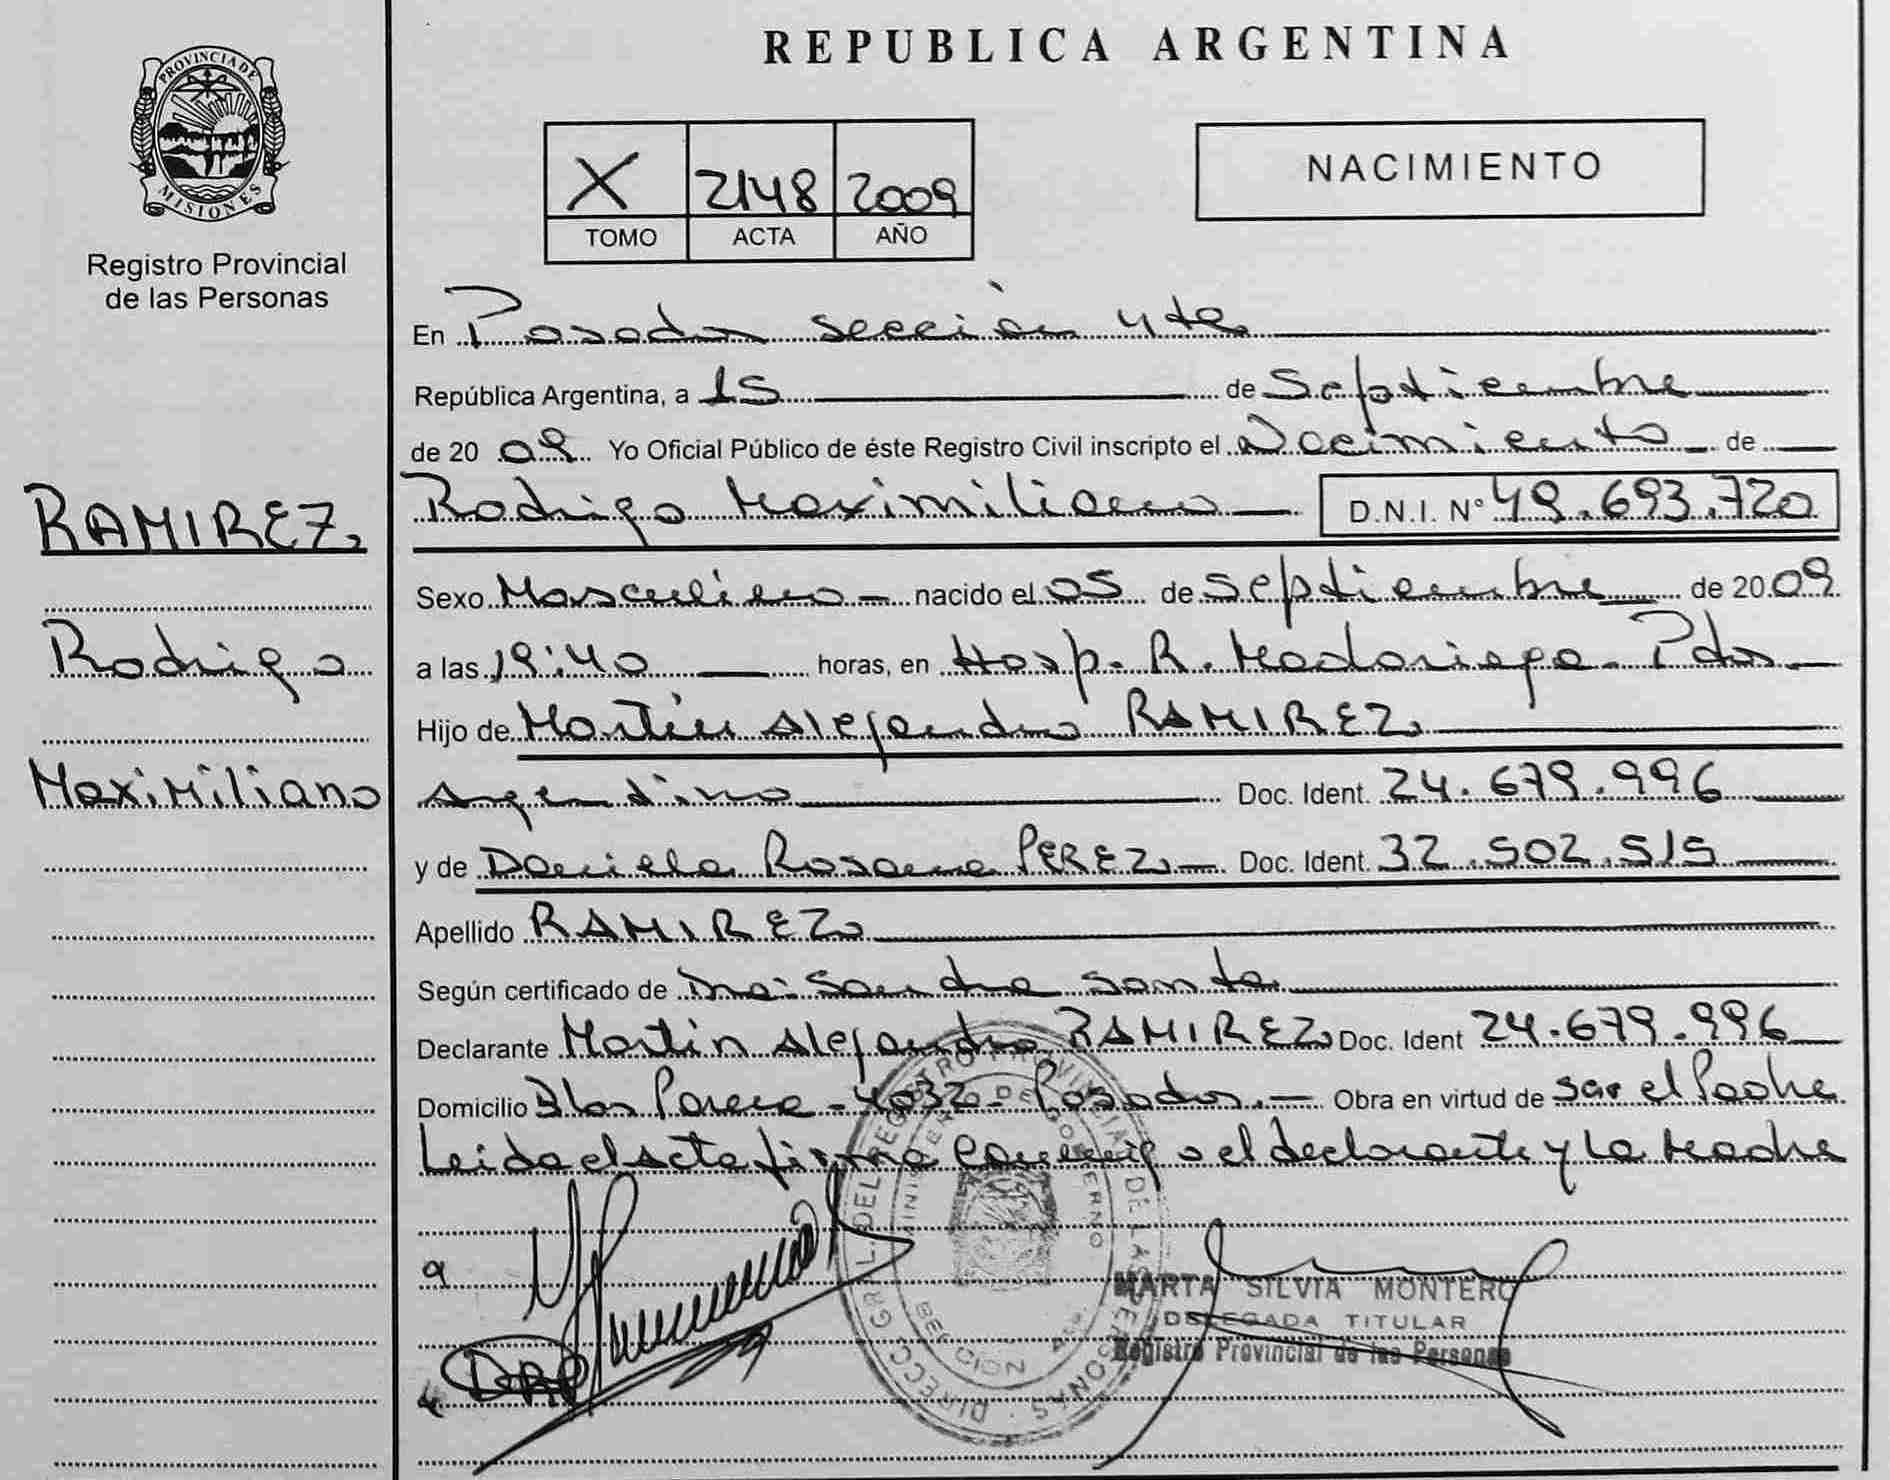 REPUBLICA ARGENTINA
PROVINCIA DE
MISIONES
Registro Provincial
de las Personas
X 2148 2009
TOMO ACTA AÑO
NACIMIENTO
En Posadas sección 4ta
República Argentina, a 15 de Septiembre
de 2009 Yo Oficial Público de éste Registro Civil inscripto el Nacimiento de
RAMIREZ
Rodrigo Maximiliano D.N.I. Nº 49.693.720
Sexo Masculino - nacido el 05 de Septiembre de 2009
Rodrigo
a las 19:40 horas, en Hosp. R. Madariaga - Pdas -
Hijo de Martín Alejandro RAMIREZ
Maximiliano
Argentino Doc. Ident. 24.679.996
y de Daniela Rosana PEREZ - Doc. Ident. 32.502.515
Apellido RAMIREZ
Según certificado de Dra: Sandra
Declarante Martín Alejandro RAMIREZ Doc. Ident 24.679.996
Domicilio Blas Parera - 4032 - Posadas. - Obra en virtud de ser el Padre
Leida el acta firma conmigo el declarante y la Madre
MARTA SILVIA MONTERO
DELEGADA TITULAR
Registro Provincial de las Personas